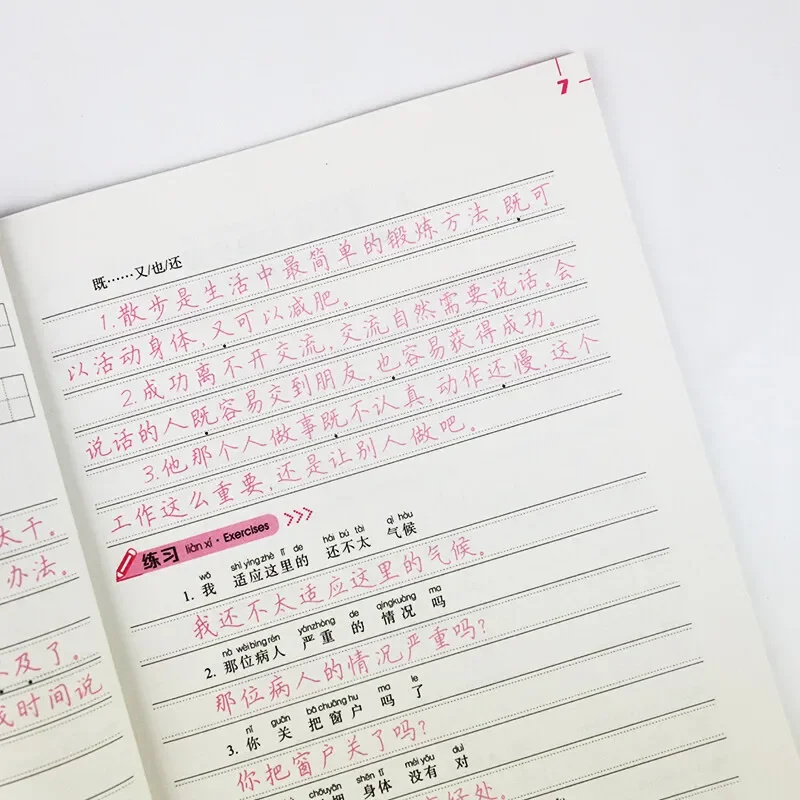 7
既……又/也/还
1.散步是生活中最简单的锻炼方法,既可
以活动身体,又可以减肥。
2.成功离不开交流,交流自然需要说话。会
说话的人既容易交到朋友,也容易获得成功。
3.他那个人做事既不认真,动作还慢,这个
工作这么重要,还是让别人做吧。
练习 liàn xí · Exercises
wǒ shì yìng zhè lǐ de hái bú tài qì hòu
1. 我 适应这里的 还不太 气候
我还不太适应这里的气候。
nà wèi bìng rén yán zhòng de qíng kuàng ma
2. 那位病人 严重 的 情况 吗
那位病人的情况严重吗?
nǐ guān bǎ chuāng hu ma le
3. 你 关 把窗户 吗 了
你把窗户关了吗?
chōu yān shēn tǐ méi yǒu duì
身体 没有 对
好处。
太干。
办法。
及了。
时间说